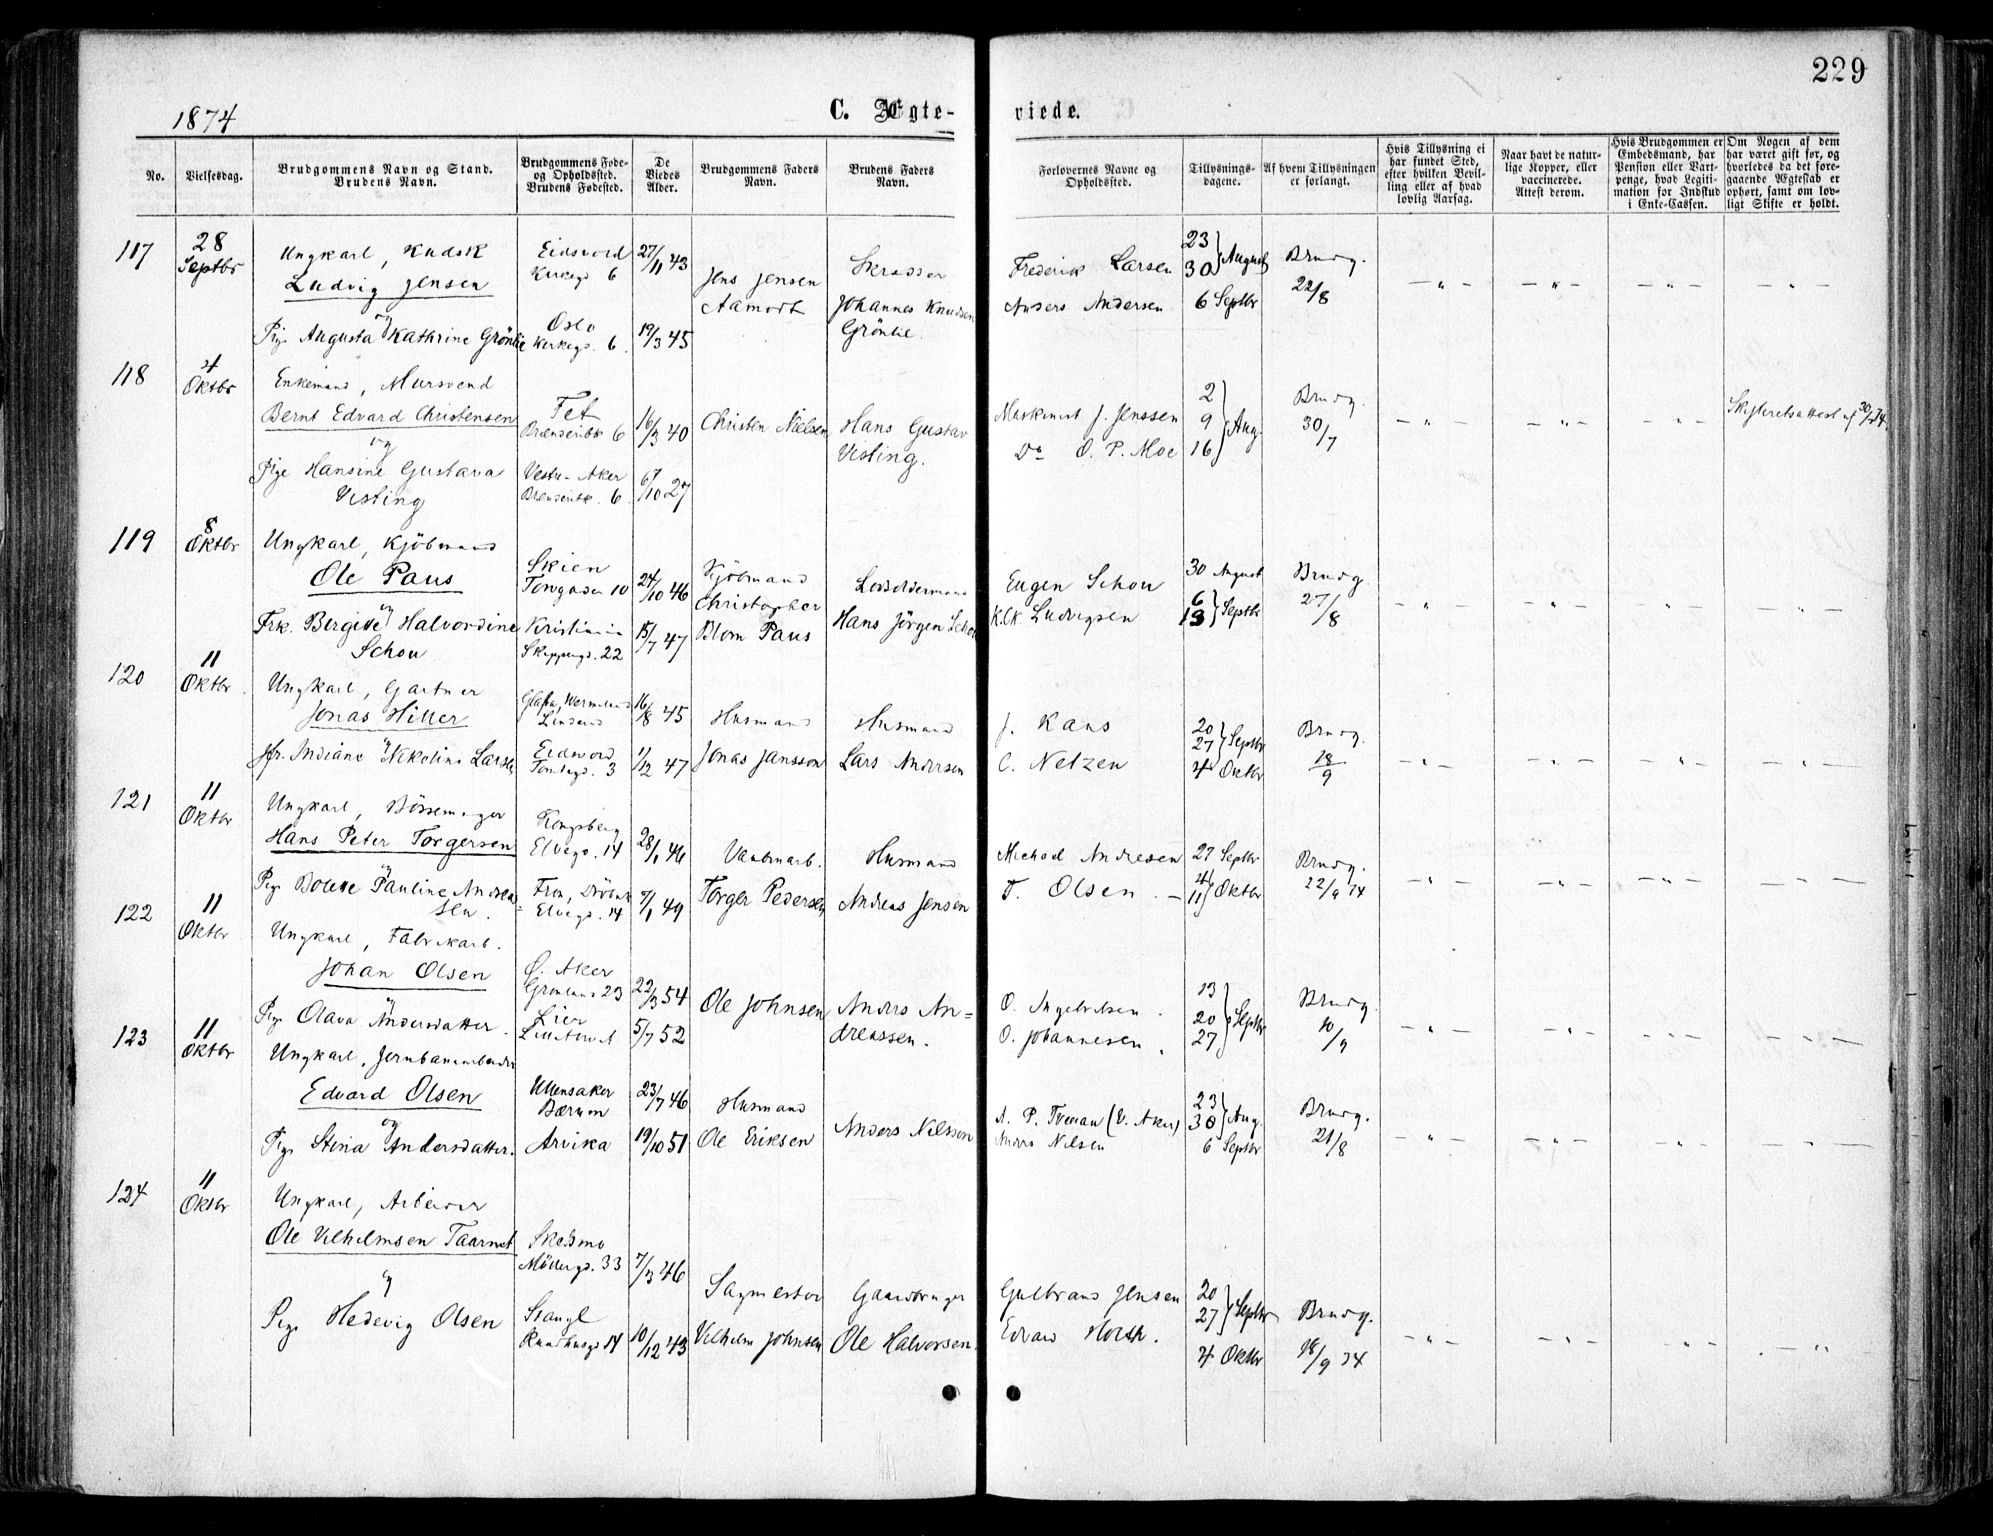 229
1874
C. Ægte-
viede.
No.
Vielsesdag.
Brudgommens Navn og Stand.
Brudens Navn.
Brudgommens Føde-
og Opholdssted.
Brudens Fødested.
De
Viedes
Alder.
Brudgommens Faders
Navn.
Brudens Faders
Navn.
Forlovernes Navne og
Opholdssted.
Tillysnings-
dagene.
Af hvem Tillysningen
er forlangt.
Hvis Tillysning ei
har fundet Sted,
efter hvilken Bevil-
ling eller af hvad
lovlig Aarsag.
Naar havt de natur-
lige Kopper, eller
vaccinerede.
Attest derom.
Hvis Brudgommen er
Embedsmand, har
Pension eller Vart-
penge, hvad Legiti-
mation for Indskud
i Enke-Cassen.
Om Nogen af dem
har været gift før, og
hvorledes da det fore-
gaaende Ægteskab er
ophørt, samt om lov-
ligt Skifte er holdt.
117
28
Septbr
Ungkarl, Kudsk
Ludvig Jensen
og
Pige Augusta Kathrine Grönlie
Eidsvold
Kirkegd 6
Oslo
Kirkegd. 6
27/11 43
19/3 45
Jens Jensen
Aamodt
Skræder
Johannes Knudsen
Grönlie
Frederik Larsen
Anders Andersen
23
30 } August
6 Septbr
Brudg.
22/8
118
4
Oktbr
Enkemand, Mursvend
Bernt Edvard Christensen
og
Pige Hansine Gustava
Visting
Fet
6
Vestre Aker
6
16/3 40
6/10 27
Christen Nielsen
Hans Gustav
Visting.
Maskinist J. Jenssen
Do O. P. Moe
2
9
16 } Aug.
Brudg.
30/7
Skifteretsattest af 30/7 74.
119
8
Oktbr
Ungkarl, Kjöbmand
Ole Paus
og
Frk. Bergitte Halvordine
Schou
Skien
Torvgaden 10
Kristiania
Skippergd. 22
24/10 46
15/7 47
Kjöbmand
Christopher
Blom Paus
Lodsoldermand
Hans Jörgen Schou
Eugen Schou
K. Chr. Ludvigsen
30 August
6
13 } Septbr
Brudg.
27/8
120
11
Oktbr
Ungkarl, Gartner
Jonas Hiller
og
Jfr. Indiane Nikoline Larsen
Glafva, Wermland
Eidsvold
Tomtegd. 3
16/8 45
1/12 47
Husmand
Jonas Jansson
Husmand
Lars Andersen
J. Kans
C. Netzen
20
27 } Septbr
4 Oktbr
Brudg.
18/9
121
11
Oktbr
Ungkarl, Bössemager
Hans Peter Torgersen
og
Pige Bolette Pauline Andrea-
sen.
Kongsberg
Elvegd. 14
Fron, Dröbak
Elvegd. 14
28/1 46
7/1 49
Torger Pedersen
Husmand
Andreas Jensen
Michael Andresen
T. Olsen
27 Septbr
4
11 } Oktbr
Brudg.
22/9 74
122
11
Oktbr
Ungkarl, Fabrikarb.
Johan Olsen
og
Pige Olava Andersdatter.
Ö. Aker
Grönland 23
Lier
22/3 54
5/7 52
Ole Johnsen
Anders An-
dreassen.
O. Ingebretsen
O. Johannesen
13
20
27 } Septbr
Brudg.
10/9
123
11
Oktbr
Ungkarl, Jernbanearbeider
Edvard Olsen
og
Pige Stina Andersdatter.
Ullensaker
Bærum
Arvika
23/7 46
19/10 51
Husmand
Ole Eriksen
Anders Nilsson
A. P. Tveian (V. Aker)
Anders Nilsen
23
30 } Aug.
6 Septbr
Brudg.
21/8
124
11
Oktbr
Ungkarl, Arbeider
Ole Vilhelmsen Taarnet
og
Pige Hedevig Olsen
Skedsmo
Möllergd. 33
Stange
Raadhusgd 14
7/3 46
10/12 43
Sagmester
Vilhelm Johnsen
Gaardbruger
Ole Halvorsen.
Gulbrand Jensen
Edvard Holth.
20
27 } Septbr
4 Oktbr
Brudg.
18/9 74